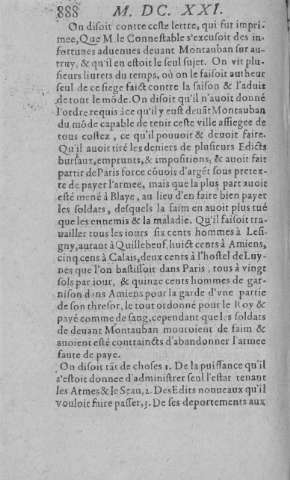 888 M. DC. XXI.
On disoit contre ceste lettre, qui fut impri-
mee, Que M. le Connestable s'excusoit des in-
fortunes aduenues deuant Montauban sur au-
truy, & qu'il en estoit le seul sujet. On vit plu-
sieurs liurets du temps, où on le faisoit autheur
seul de ce siege faict contre la saison & l'aduis
de tout le mõde. On disoit qu'il n'auoit donné
l'ordre requis à ce qu'il y eust deuãt Montauban
du mõde capable de tenir ceste ville assiegee de
tous costez, ce qu'il pouuoit & deuoit faire.
Qu'il auoit tiré les deniers de plusieurs Edicts
bursaux, emprunts, & impositions, & auoit fait
partir de Paris force cõuois d'argẽt sous pretex-
te de payer l'armee, mais que la plus part auoit
esté mené à Blaye, au lieu d'en faire bien payer
les soldats, desquels la faim en auoit plus tué
que les ennemis & la maladie. Qu'il faisoit tra-
uailler tous les iours six cents hommes à Lesi-
gny, autant à Quillebeuf, huict cents à Amiens,
cinq cens à Calais, deux cents à l'hostel de Luy-
nes que l'on bastissoit dans Paris, tous à vingt
sols par iour, & quinze cents hommes de gar-
nison dans Amiens pour la garde d'vne partie
de son thresor, le tout ordonné pour le Roy &
payé comme de sang, cependant que les soldats
de deuant Montauban mouroient de faim &
auoient esté contraincts d'abandonner l'armee
faute de paye.
On disoit tãt de choses 1. De la puissance qu'il
s'estoit donnee d'administrer seul l'estat tenant
les Armes & le Seau, 2. Des Edits nouueaux qu'il
vouloit faire passer, 3. De ses deportements aux